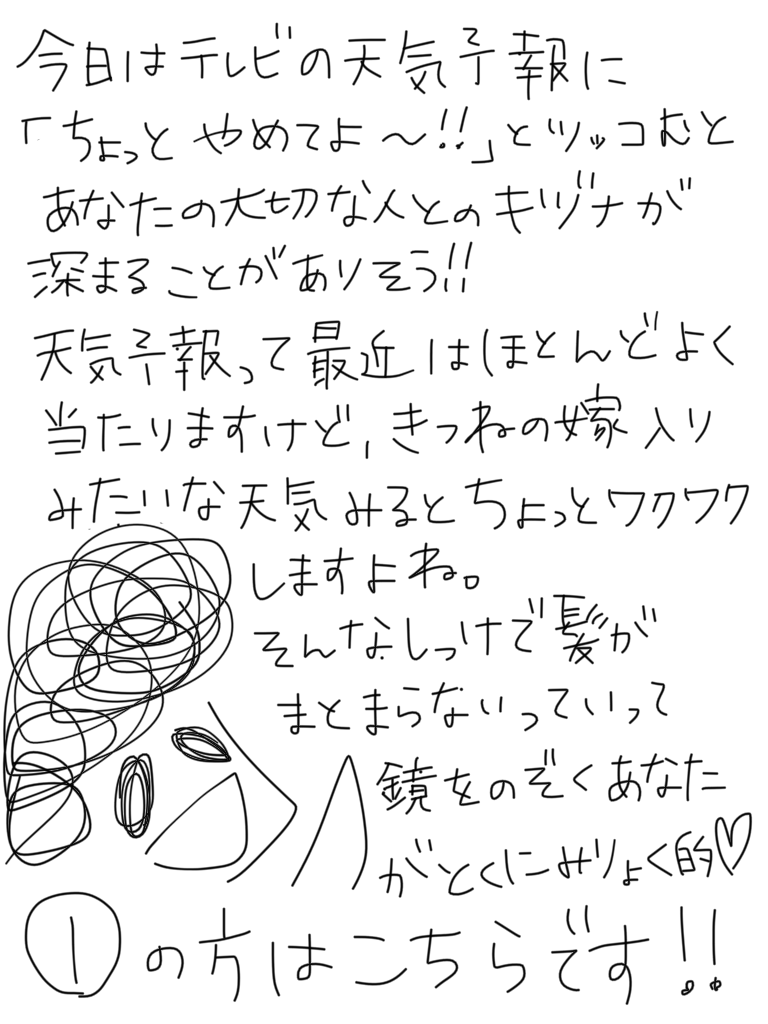 今日はテレビの天気予報に
「ちょっとやめてよ〜!!」とツッコむと
あなたの大切な人とのキヅナが
深まることがありそう!!
天気予報って最近はほとんどよく
当たりますけど,きつねの嫁入り
みたいな天気みるとちょっとワクワク
しますよね。
そんなしっけで髪が
まとまらないっていって
鏡をのぞくあなた
がとくにみりょく的♡
①の方はこちらです!!